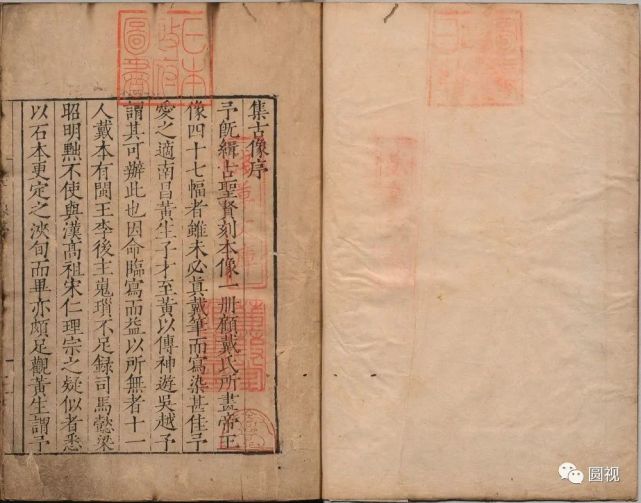 集古像序
予既緝古聖賢刻本像一册顧戴氏所畫帝王
像四十七幅者雖未必真戴筆而寫染甚佳予
愛之適南昌黃生子才至黃以傳神遊吳越予
謂其可辦此也因命臨寫而益以所無者十一
人戴本有閩王李後主嵬瑣不足録司馬懿梁
昭明㸃不使與漢高祖宋仁理宗之疑似者悉
以石本更定之浹旬而畢亦頗足觀黃生謂予
日本
政府
圖書
圆视